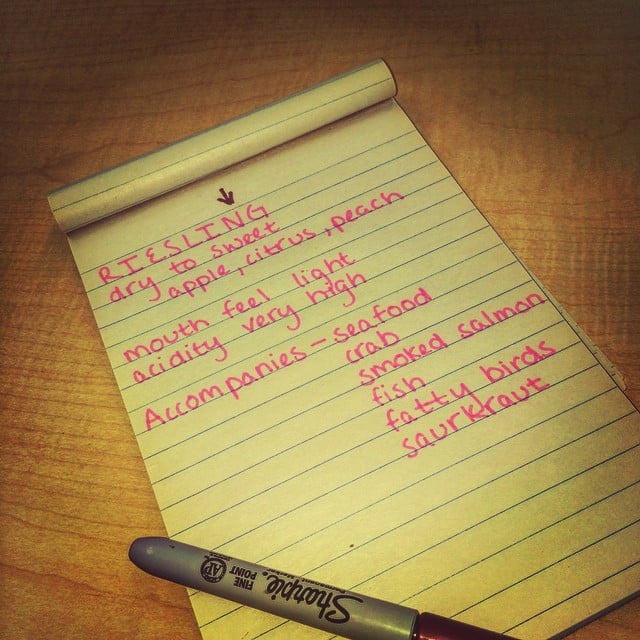 RIESLING
dry to sweet
apple, citrus, peach
mouth feel light
acidity very high
Accompanies - seafood
crab
smoked salmon
fish
fatty birds
saurkraut
Sharpie
FINE
POINT
AP